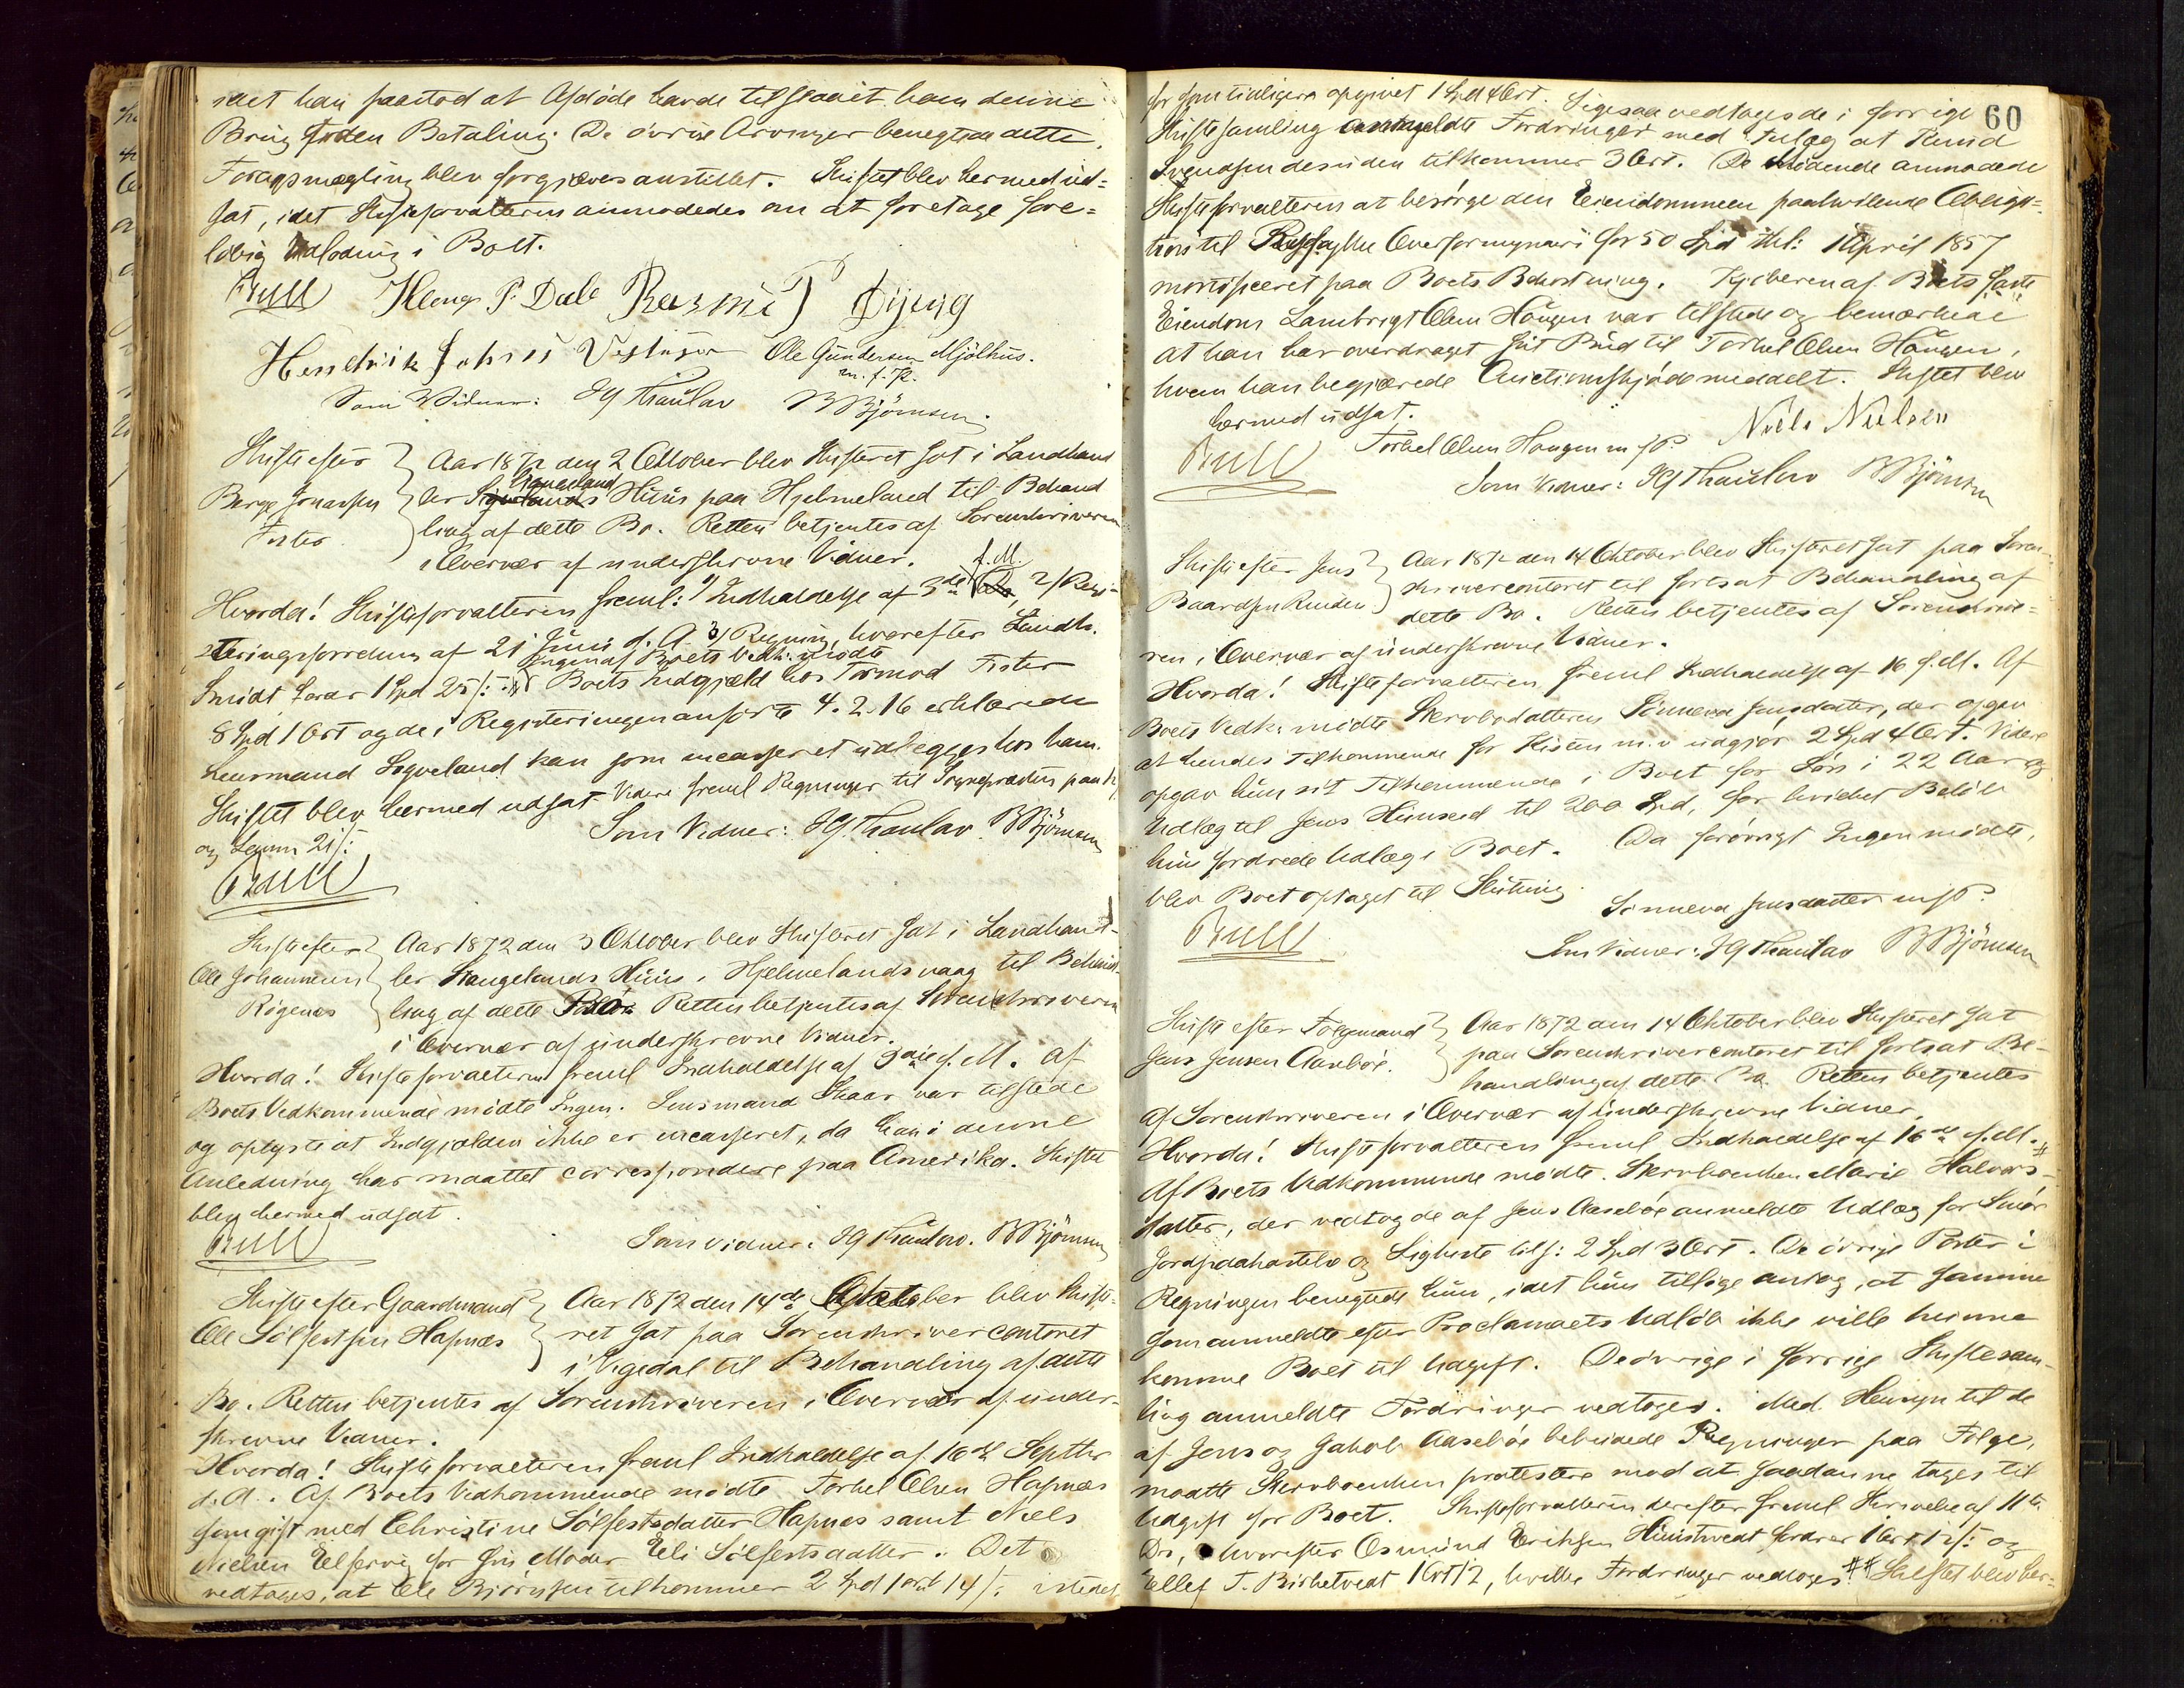 idet han paastod at Afdøde havde tilstaaet ham denne
Brug foruden Betaling. De øvrige Arvinger benegtede dette.
Forligsmægling blev forgjæves anstillet. Skiftet blev hermed ud-
sat, idet Skifteforvalteren anmodedes om at foretage fore-
løbig Udlodning i Boet.
Bull Helge P. Dale Rasmus P Øijeng
Hendrik Johnsen Ole Gundersen Mjølhus.
m. f. P.
Som Vidner: JG Thaulow B Bjørnsen.
Skifte efter
Børge Jonassen
Fister
Aar 1872 den 2 Oktober blev Skifteret sat i Landhand
ler Hauelands Huus paa Hjelmeland til Behand
ling af dette Bo. Retten betjentes af Sorenskriveren
i Overvær af underskrevne Vidner.
Hvorda! Skifteforvalteren freml: 1) Indkaldelse af 3de f. M. 2) Regi-
steringsforretning af 21 Juni d. A. 3) Regning, hvorefter Landh.
Ingen af Boets Vedk: mødte
Smidt fordrer 1 Spd 25 s: Boets Indgjæld hos Tormod Fister
8 Spd 1 Ort og de i Registeringen anførte 4. 2. 16 erklærede
Lensmand Sigveland kan som incasseret udlægges hos ham.
Skiftet blev hermed udsat. Videre freml Regninger til Sognepræsten paa 12
og 21 s:
Som Vidner: JG Thaulow. B Bjørnsen
Bull
Skifte efter
Ole Johannesen
Røgenæs
Aar 1872 den 3 Oktober blev Skifteret sat i Landhand-
ler Haugelands Huus i Hjelmelandsvaag til Behand-
ling af dette Bo. Retten betjentes af Sorenskriveren
i Overvær af underskrevne Vidner.
Hvorda! Skifteforvalteren freml Indkaldelse af 3die f. M. Af
Boets Vedkommende mødte Ingen. Lensmand Skaar var tilstede
og oplyste at Indgjælden ikke er incasseret, da han i denne
Anledning har maattet correspondere paa Amerika. Skiftet
blev hermed udsat.
Bull
Som Vidner: JG Thaulow. B Bjørnsen
Skifte efter Gaardmand
Ole Sølfestsen Hapnæs
Aar 1872 den 14de Oktober blev Skifte-
ret sat paa Sorenskrivercontoret
i Vigedal til Behandling af dette
Bo. Retten betjentes af Sorenskriveren i Overvær af under-
skrevne Vidner.
Hvorda! Skifteforvalteren freml Indkaldelse af 16de Septbr
d. A. Af Boets Vedkommende mødte Torkel Olsen Hapnæs
som gift med Christine Sølfestsdatter Hapnæs samt Niels
Nielsen Elfervig for sin Moder Eli Sølfestsdatter. Det
vedtoges, at Ole Bjørnsen tilkommer 2 Spd 1 Ort 14 s: istedet
60
for som tidligere opgivet 1 Spd 4 Ort. Ligesaa vedtoges de i forrige
Skiftesamling anmeldte Fordringer med Tillæg at Knud
Svendsen desuden tilkommer 3 Ort. De Mødende anmodede
Skifteforvalteren at besørge den Eiendommen paahvilende Obliga-
tion til Ryfylke Overformynderi for 50 Spd thl: 1 April 1857
mortificeret paa Boets Bekostning. Kjøberen af Boets faste
Eiendom Lambrigt Olsen Haugen var tilstede og bemærkede
at han har overdraget sit Bud til Torkel Olsen Haugen,
hvem han begjærede Auctionsskjøde meddelt. Skiftet blev
hermed udsat.
Bull Torkel Olsen Haugen m. f. P. Niels Nielsen
Som Vidner: JG Thaulow B Bjørnsen
Skifte efter Jens
Baardsen Ruden
Aar 1872 den 14 Oktober blev Skifteret sat paa Soren-
skrivercontoret til fortsat Behandling af
dette Bo. Retten betjentes af Sorenskrive-
ren i Overvær af underskrevne Vidner.
Hvorda! Skifteforvalteren freml Indkaldelse af 16 f. M. Af
Boets Vedk: mødte Stervbodatteren Sønneva Jensdatter, der opgav
at hendes Tilkommende for Kisten m. v udgjør 2 Spd 4 Ort. Videre
opgav hun sit Tilkommende i Boet for Løn i 22 Aar og
Udlæg til Jens Huuseed til 200 Spd, for hvilket Beløb
hun fordrede Udlæg i Boet. Da forøvrigt Ingen mødte,
blev Boet optaget til Slutning.
Sønneva Jensdatter m f P.
Bull
Som Vidner: JG Thaulow B Bjørnsen
Skifte efter Følgemand
Jens Jensen Aasebøe.
Aar 1872 den 14 Oktober blev Skifteret sat
paa Sorenskrivercontoret til fortsat Be-
handling af dette Bo. Retten betjentes
af Sorenskriveren i Overvær af underskrevne Vidner.
Hvorda! Skifteforvalteren freml Indkaldelse af 16de f. M. #
Af Boets Vedkommende mødte Stervboenken Marie Halvors-
datter, der vedtog de af Jens Aasebøe anmeldte Udlæg for Smør
Jordpaakastelse og Ligkiste tils: 2 Spd 3 Ort. De øvrige Poster i
Regningen benegtede hun, idet hun tillige antog, at samme
som anmeldte efter Proclamaets Udløb ikke ville kunne
komme Boet til Udgift. De øvrige i forrige Skiftesam-
ling anmeldte Fordringer vedtoges. Med Hensyn til de
af Jens og Jakob Aasebøe Regninger paa Følge,
maatte Stervboenken protestere mod at saadanne tages til
Udgift for Boet. Skifteforvalteren derefter freml Skrivelse af 11te
Ds, hvorefter Osmund Eriksen Huustvedt fordrer 1 Ort 12 s: og
Ellef T. Birketvedt 1 Ort 12, hvilke Fordringer vedtoges. ## Skiftet blev her-